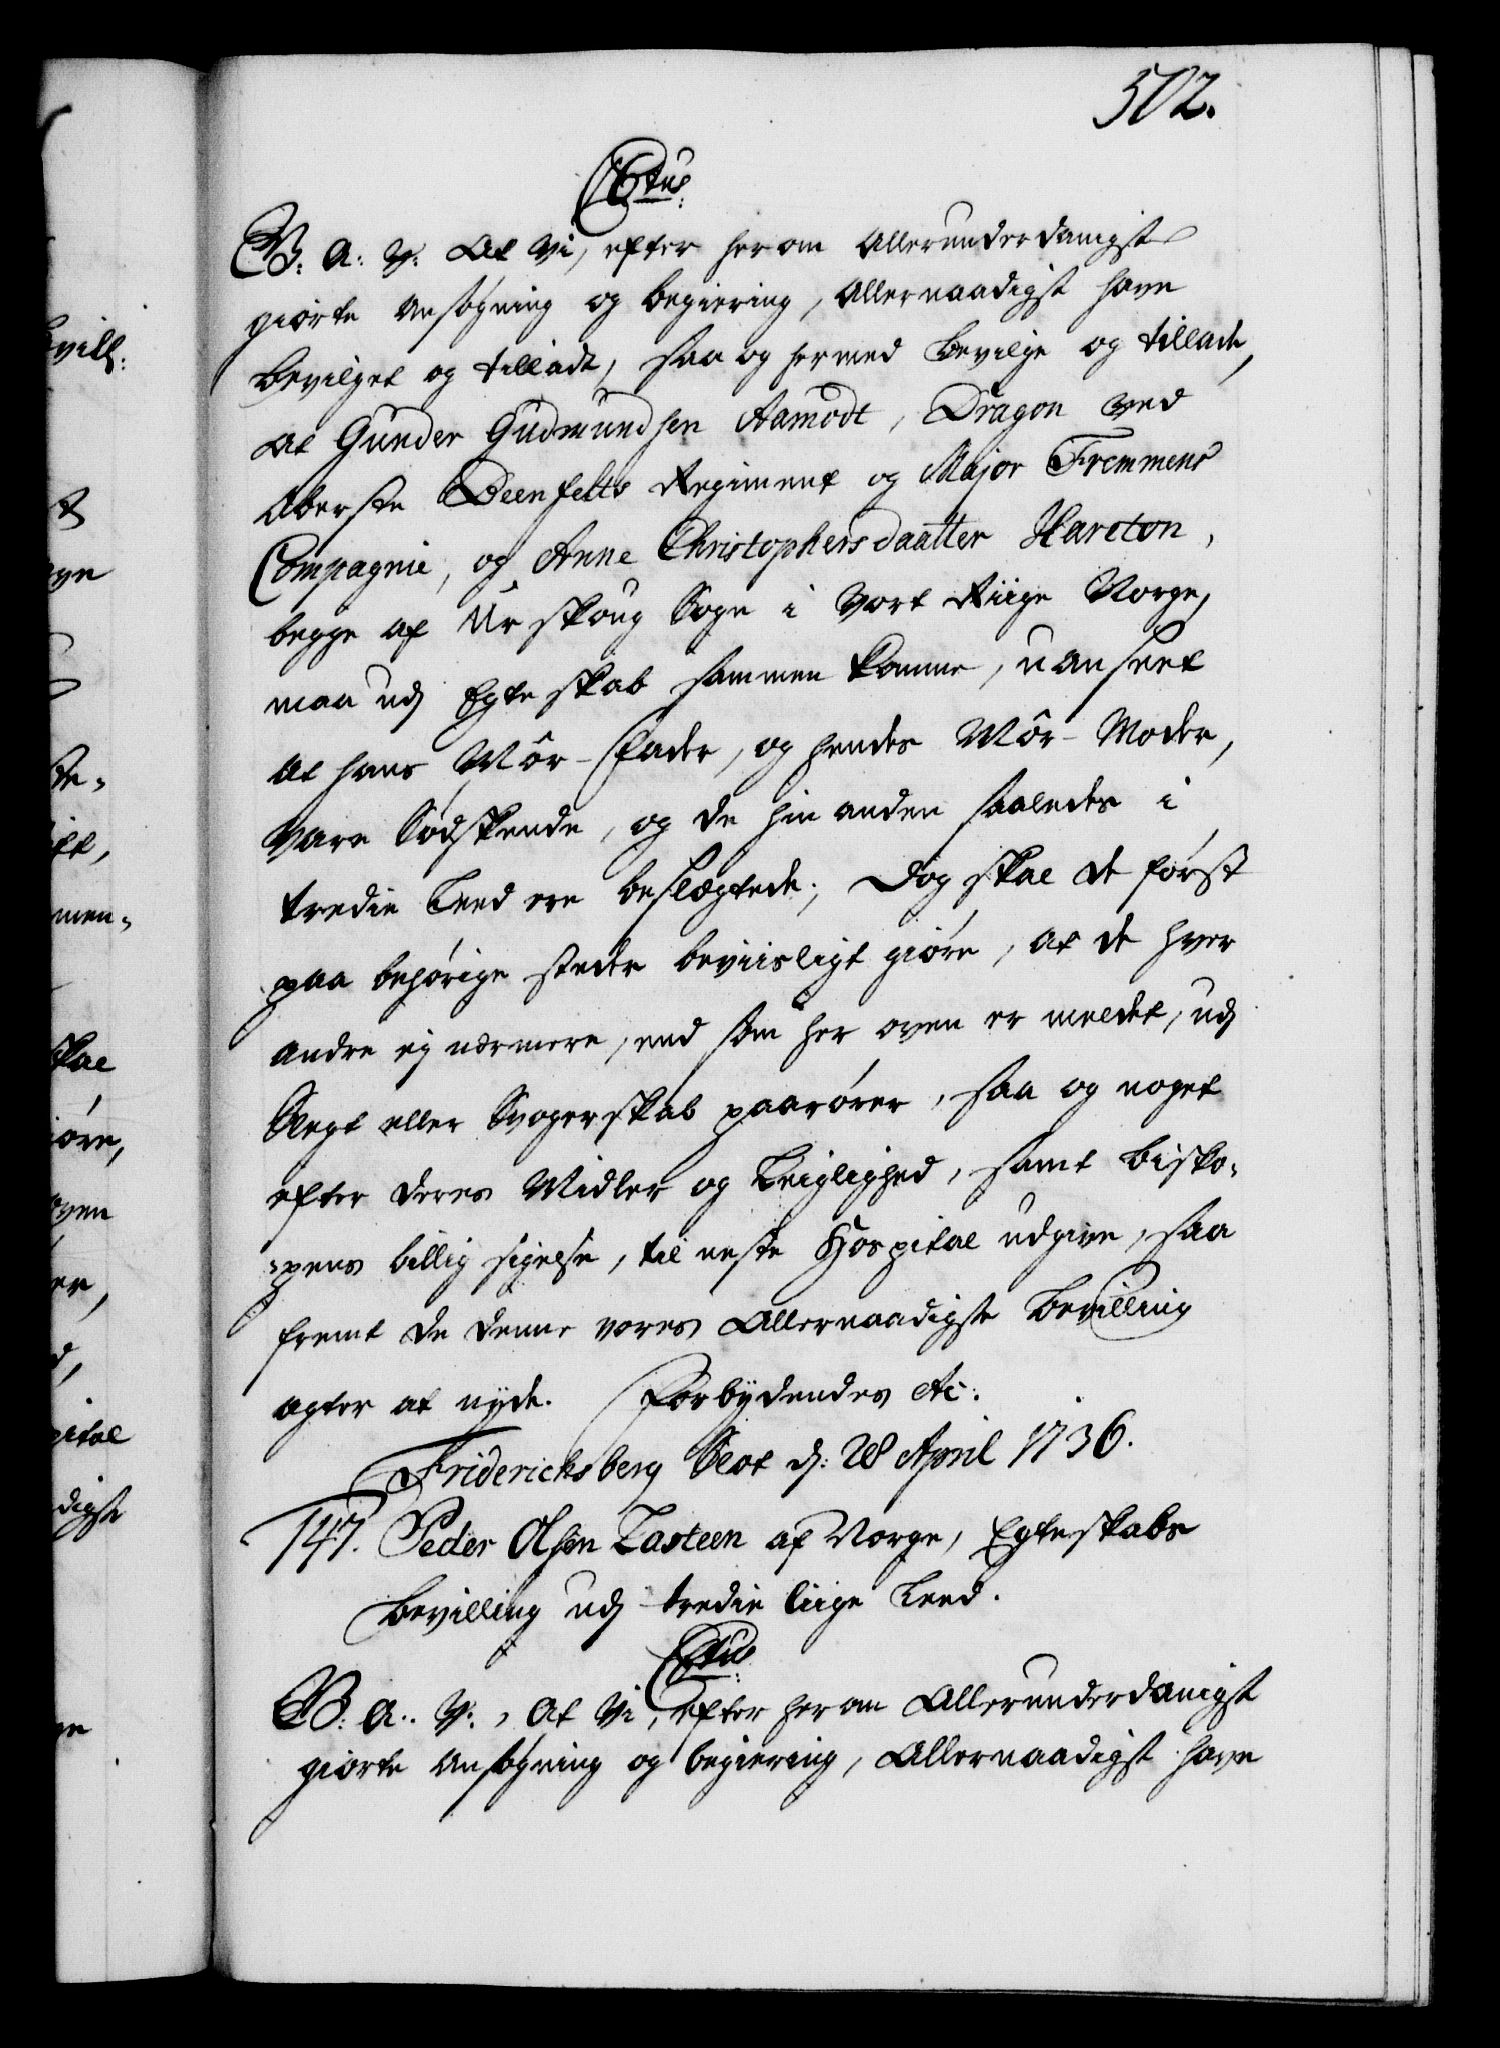 502.
Ctus.
G. A. V. At Vi, efter herom Allerunderdanigst
giorte Ansøgning og begiering, Allernaadigst have
bevilget og tilladt, saa og hermed bevilge og tillade,
at Gunder Gudmundsen Aamodt, Dragon ved
Oberste Deenfelts Regiment og Major Fremmens
Compagnie, og Anne Christophersdaatter Harcton,
begge af Urskoug Sogn i Vort Riige Norge,
maa udj Egteskab sammen komme, uanseet
at hans Môr-Fader, og hendes Môr-Moder,
vare Sødskende, og de hinanden saaledes i
tredie Leed ere beslægtede; Dog skal de først
paa behørige steder beviisligt giøre, at de hver
andre ej nærmere, end som her oven er meldet, udj
Slegt eller Svogerskab paarører, saa og noget
efter deres Midler og Leiglighed, samt bisko-
-pens billig sigelse, til neste Hospital udgive, saa
fremt de denne vores Allernaadigste bevilling
agter at nyde. Forbydendes etc:
Friderichsberg Slot d: 28 April 1736.
147. Peder Olsen Lasteen af Norge, Egteskabs
bevilling udj tredie liige Leed.
Ctus.
G. A. V., At Vi, efter herom Allerunderdanigst
giorte Ansøgning og begiering, Allernaadigst have